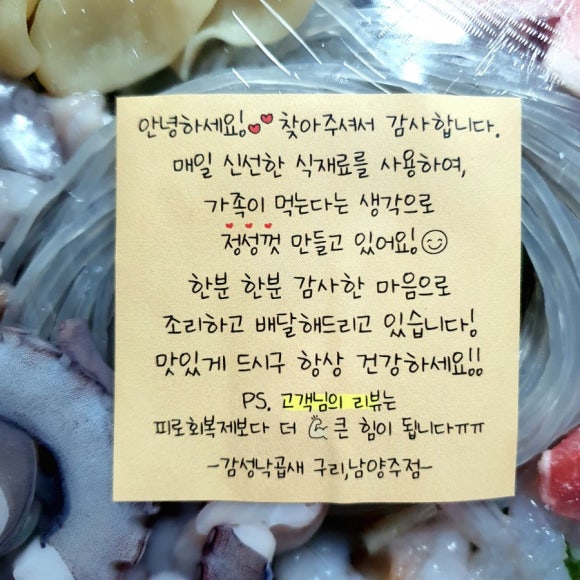 안녕하세요! 찾아주셔서 감사합니다.
매일 신선한 식재료를 사용하여,
가족이 먹는다는 생각으로
정성껏 만들고 있어요!
한분 한분 감사한 마음으로
조리하고 배달해드리고 있습니다!
맛있게 드시구 항상 건강하세요!!
PS. 고객님의 리뷰는
피로회복제보다 더 큰 힘이 됩니다ㅠㅠ
-감성낙곱새 구리,남양주점-